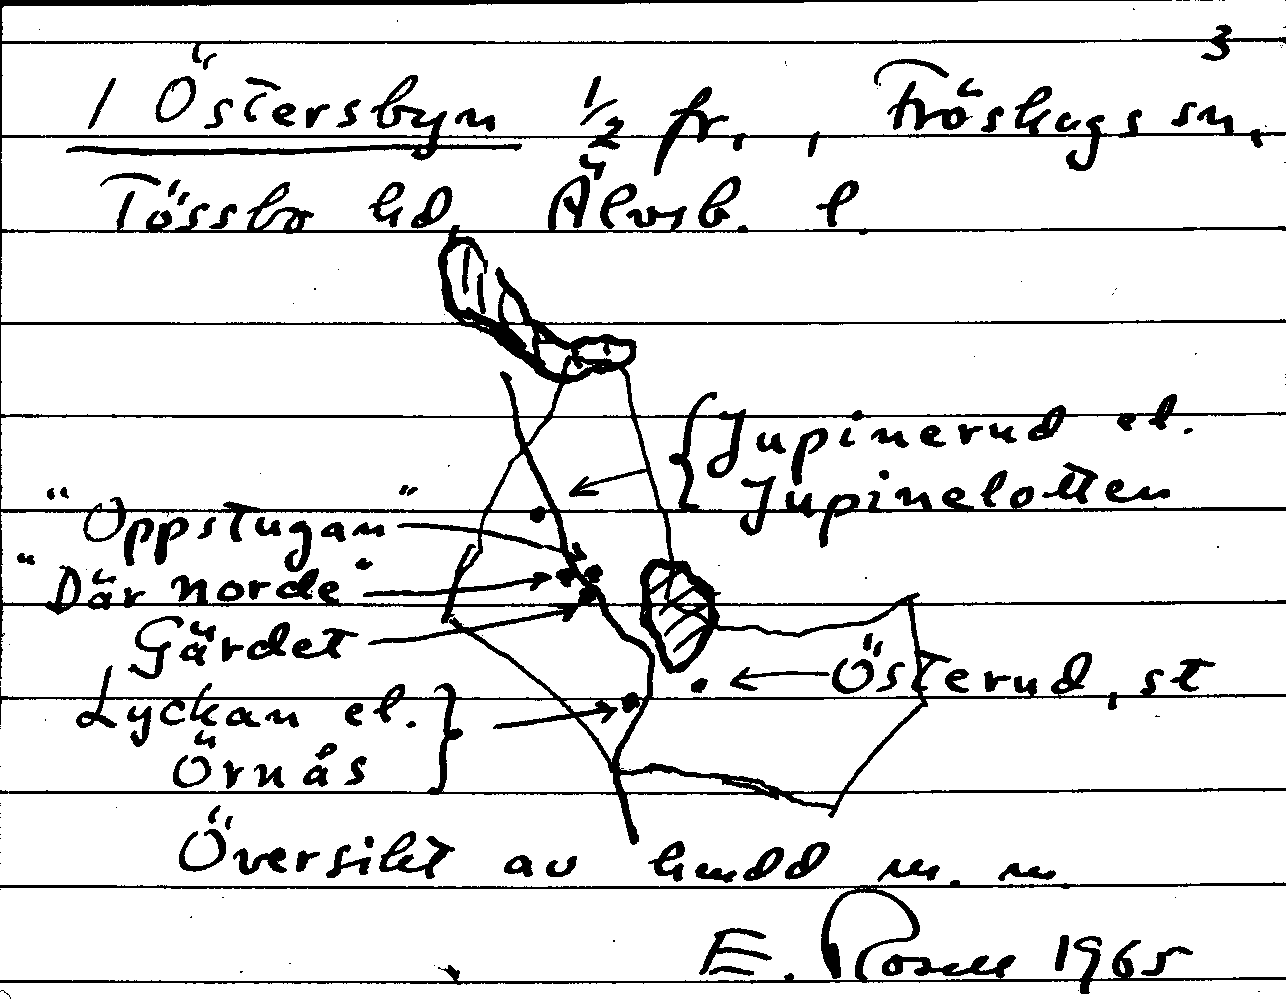 3
1 Östersbyn 1/2 fr., Fröskogs sn,
Tössbo hd, Älvsb. l.
Jupinerud el.
Jupinelotten
"Oppstugan"
"Där norde"
Gärdet
Österud, st
Lyckan el.
Örnås
Översikt av m. m.
E. Rosell 1965